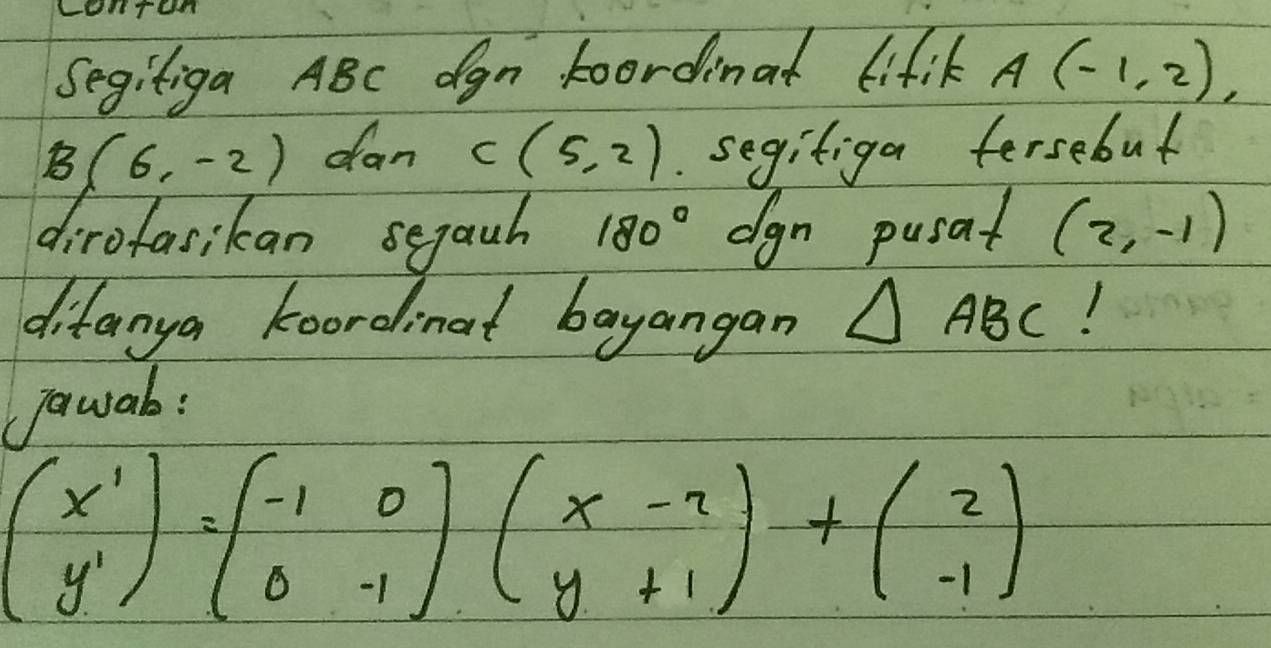 Contoh
Segitiga ABC dgn koordinat titik A (-1, 2),
B(6, -2) dan C (5,2). segitiga tersebut
dirotasikan sejauh 180° dgn pusat (2,-1)
ditanya koordinat bayangan Δ ABC !
Jawab:
(x' y') = (-1 0 0 -1) (x -2 y +1) + (2 -1)